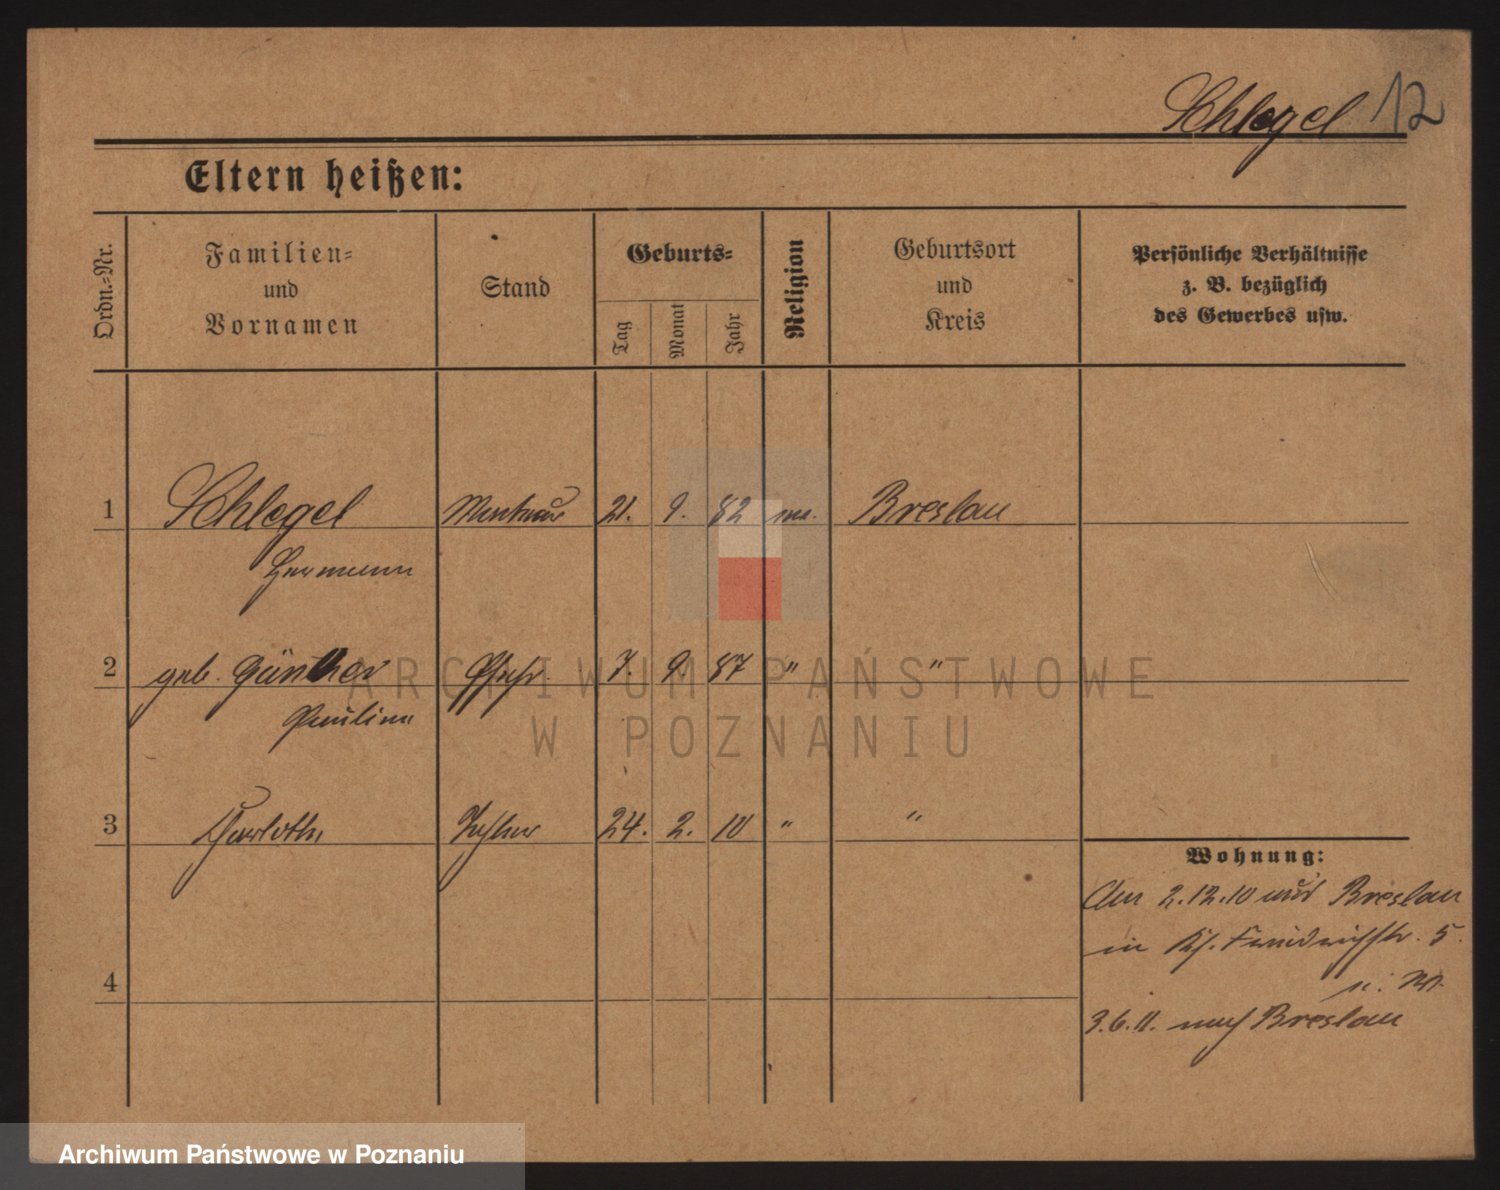 Schlegel 12
Eltern heißen:
Ordn.-Nr.
Familien-
und
Vornamen
Stand
Geburts-
Tag
Monat
Jahr
Religion
Geburtsort
und
Kreis
Persönliche Verhältnisse
z. B. bezüglich
des Gewerbes usw.
1 Schlegel Monteur 21. 9. 82 Breslau
Hermann
2 geb. Günther Ehefr. 7. 9. 87 " "
Pauline
3 Tochter 24. 2. 10 " "
Wohnung:
Am 2.12.10 aus Breslau
in 5.
4
3.6.11. nach Breslau
ARCHIWUM PAŃSTWOWE
W POZNANIU
Archiwum Państwowe w Poznaniu